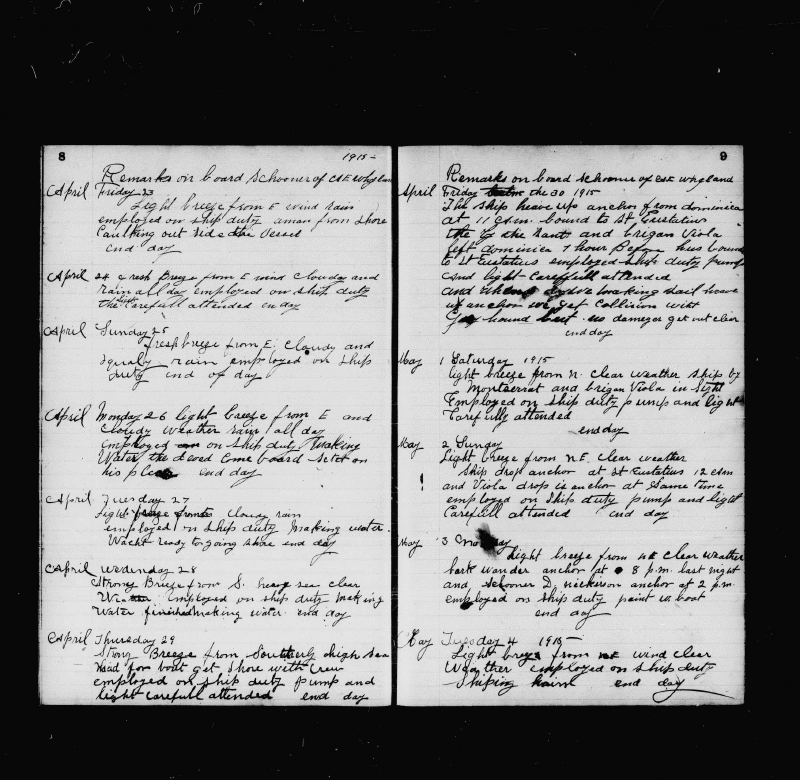 8
1915
Remarks on board Schooner of C&E Whyland
April Friday 23
Light breeze from E wind rain
employed on ship duty a man from shore
Caulking out side the Vessel
end day
April 24 fresh Breeze from E wind Cloudy and
rain all day employed on ship duty
the Carefull attended en day
April Sunday 25
fresh breeze from E. Cloudy and
squaly rain employed on ship
duty end of day
April Monday 26 light breeze from E and
Cloudy weather rain all day
Employed on ship duty Making
Water the Come board
his end day
April Tuesday 27
Light Cloudy rain
employed on ship duty Making water
Wacht ready to going shore end day
April wedersday 28
Strong Breeze from S. heavy sea clear
Weather Employed on ship duty Making
Water finished making water end day
April Thursday 29
Strong Breeze from Southerly high sea
boat get shore with Crew
employed on ship duty pump and
light carefull attended end day
9
Remarks on board Schooner of C&E Whyland
April Friday the 30 1915
The ship heave up anchor from dominica
at 11 a.m. bound to St Eustatius
the and brigan Viola
left dominica 1 hour Before hus bound
to St Eustatius employed ship duty pump
and light Carefull attended
and making sail hove
up anchor we get Collision with
hound boat no damages get out clear
end day
May 1 Saturday 1915
light breeze from N. Clear weather Ship by
Montserrat and brigan Viola in sight
Employed on ship duty pump and light
Carefully attended
end day
May 2 Sunday
Light breeze from N.E. Clear weather
Ship drop anchor at St Eustatius 12 a.m
and Viola drop is anchor at Same time
employed on ship duty pump and light
Carefull attended end day
May 3 Monday
Light breeze from NE Clear weather
bark wander anchor at 8 p.m. last night
and schooner D. nickison anchor at 2 p.m.
employed on ship duty paint w boat
end day
May Tuesday 4 1915
Light breys from NE wind clear
Weather employed on ship duty
Shiping end day